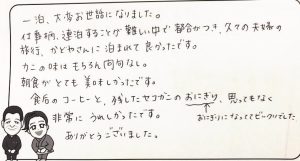 一泊、大変お世話になりました。
仕事柄、連泊することが難しい中で都合がつき、久々の夫婦の
旅行、かどやさんに泊まれて良かったです。
カニの味はもちろん何句なし。
朝食がとても美味しかったです。
食后のコーヒーと、残したセコガニのおにぎり、思ってもなく
非常にうれしかったです。
おにぎりになってビックリでした
ありがとうございました。